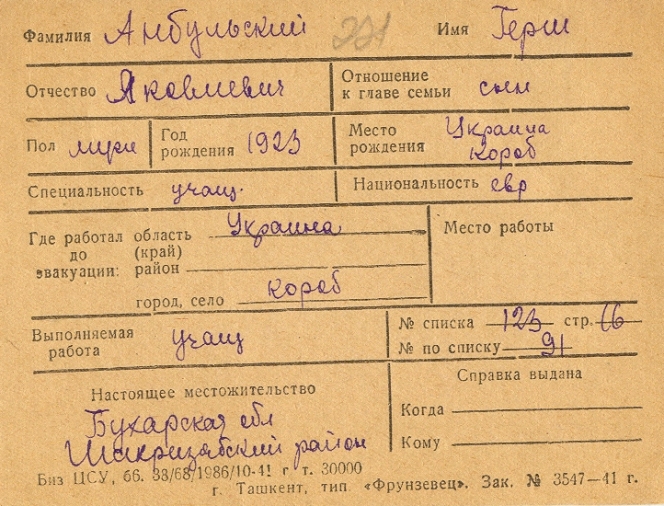 Фамилия Анбульский 221 Имя Герш
Отчество Яковлевич Отношение к главе семьи сын
Пол муж Год рождения 1923 Место рождения Украина Короб
Специальность учащ. Национальность евр
Где работал до эвакуации: область (край) Украина
район
город, село Короб
Место работы
Выполняемая работа учащ
№ списка 123 стр. 66
№ по списку 91
Настоящее местожительство
Бухарская обл
Шахризябский район
Справка выдана
Когда
Кому
Биз ЦСУ, бб. 33/68/1986/10-41 г т. 30000
г. Ташкент, тип. «Фрунзевец». Зак. № 3547—41 г.